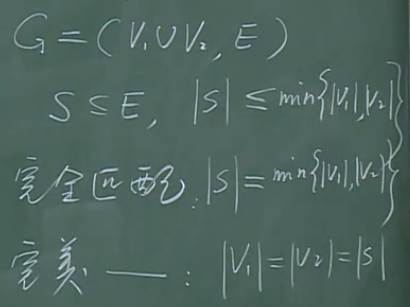 G=(V₁∪V₂,E)
S⊆E, |S|≤min{|V₁|,|V₂|}
完全匹配:|S|=min{|V₁|,|V₂|}
完美——:|V₁|=|V₂|=|S|